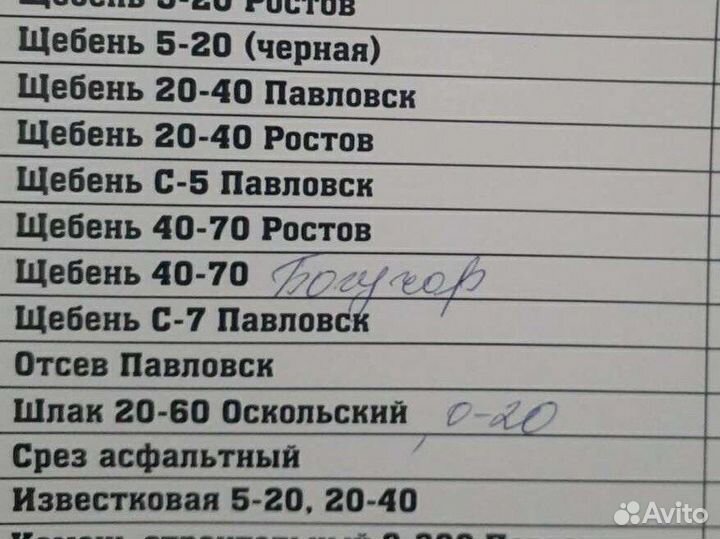 Щебень 5-20 Ростов
Щебень 5-20 (черная)
Щебень 20-40 Павловск
Щебень 20-40 Ростов
Щебень С-5 Павловск
Щебень 40-70 Ростов
Щебень 40-70 Богучар
Щебень С-7 Павловск
Отсев Павловск
Шлак 20-60 Оскольский , 0-20
Срез асфальтный
Известковая 5-20, 20-40
Камень строительный
Avito